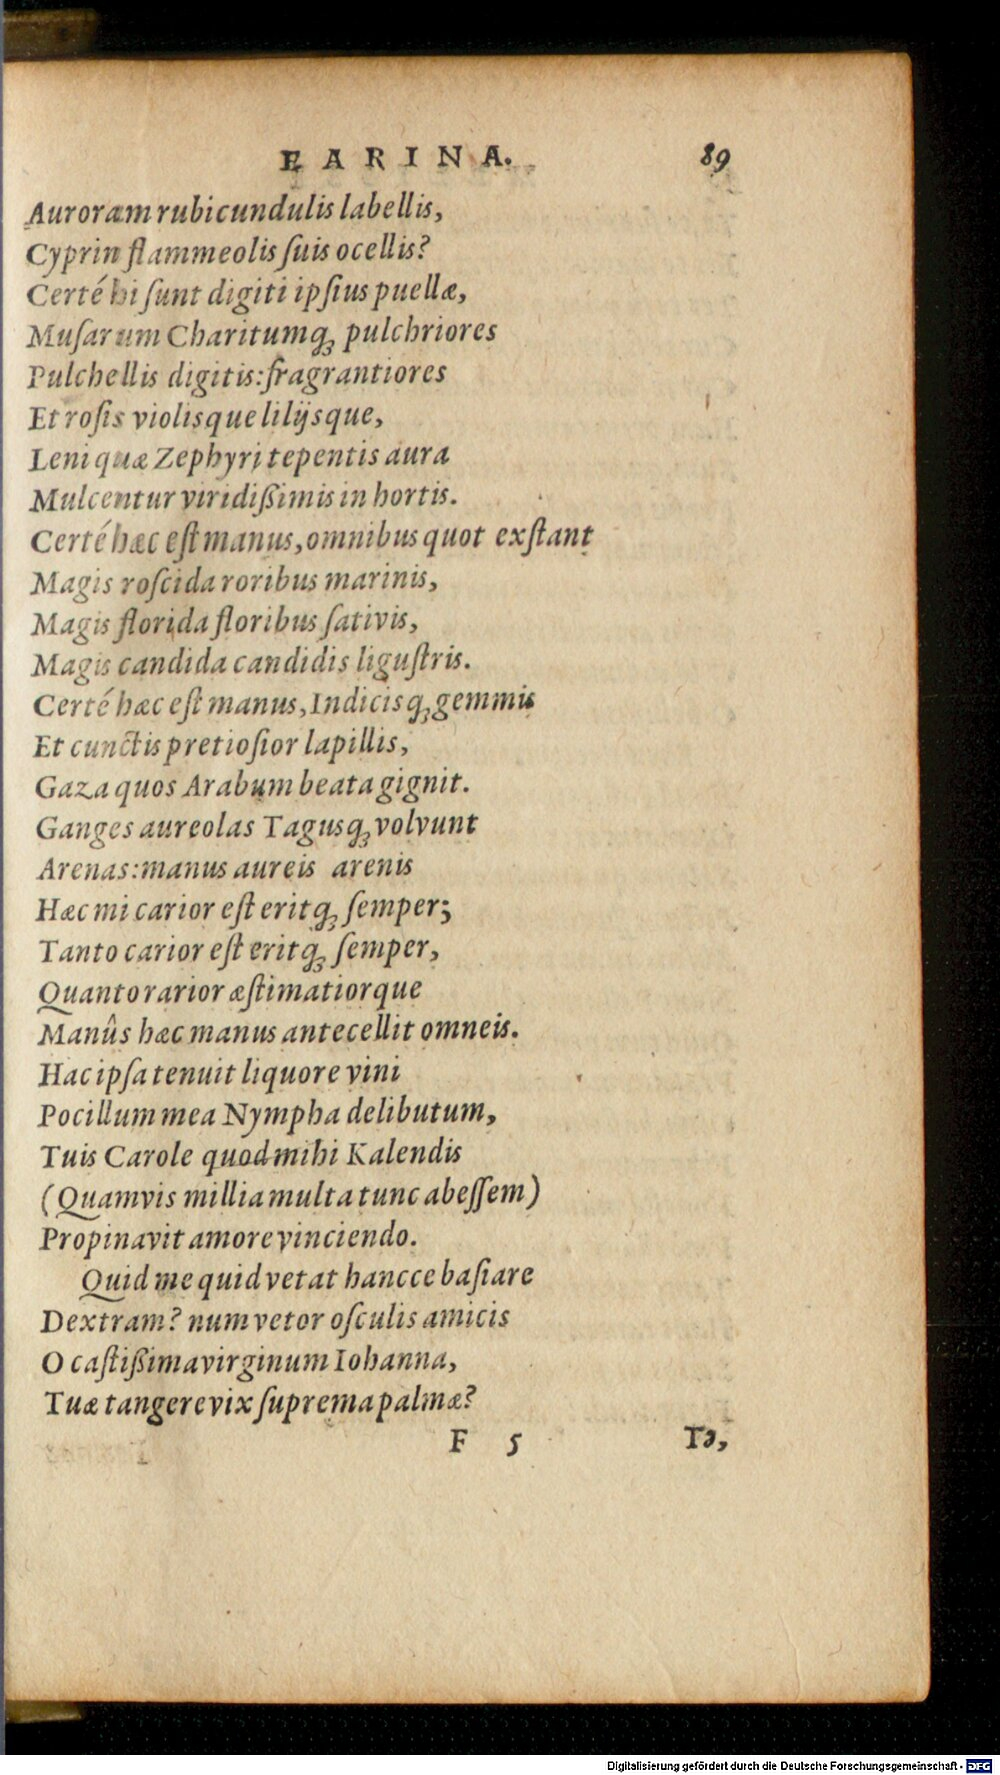 EARINA. 89
Auroram rubicundulis labellis,
Cyprin flammeolis ſuis ocellis?
Certé hi ſunt digiti ipſius puellæ,
Muſarum Charitumq́ꝫ pulchriores
Pulchellis digitis: fragrantiores
Et roſis violisque lilijsque,
Leni quæ Zephyri tepentis aura
Mulcentur viridißimis in hortis.
Certé hæc eſt manus, omnibus quot exſtant
Magis roſcida roribus marinis,
Magis florida floribus ſativis,
Magis candida candidis liguſtris.
Certé hæc eſt manus, Indicisq́ꝫ gemmis
Et cunctis pretioſior lapillis,
Gaza quos Arabum beata gignit.
Ganges aureolas Tagusq́ꝫ volvunt
Arenas: manus aureis arenis
Hæc mi carior eſt eritq́ꝫ ſemper;
Tanto carior eſt eritq́ꝫ ſemper,
Quanto rarior æſtimatiorque
Manûs hæc manus antecellit omneis.
Hac ipſa tenuit liquore vini
Pocillum mea Nympha delibutum,
Tuis Carole quod mihi Kalendis
(Quamvis millia multa tunc abeſſem)
Propinavit amore vinciendo.
Quid me quid vetat hancce baſiare
Dextram? num vetor oſculis amicis
O caſtißima virginum Iohanna,
Tuæ tangere vix ſuprema palmæ?
F 5
Digitalisierung gefördert durch die Deutsche Forschungsgemeinschaft - DFG